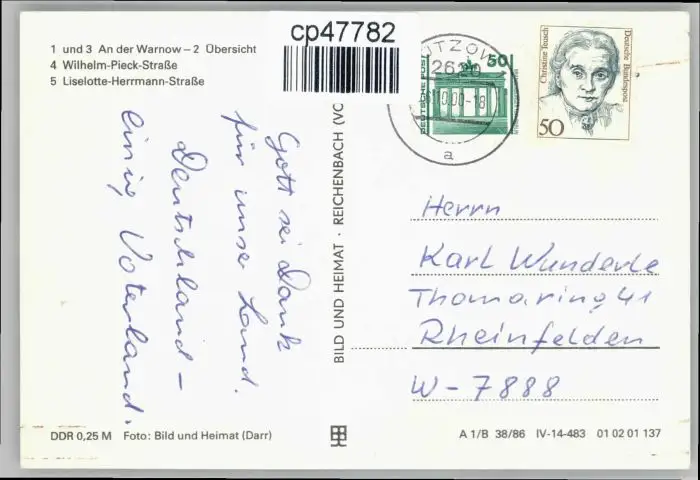 cp47782
1 und 3 An der Warnow – 2 Übersicht
4 Wilhelm-Pieck-Straße
5 Liselotte-Herrmann-Straße
Gott sei Dank
für unser Land.
Deutschland –
einig Vaterland.
BILD UND HEIMAT · REICHENBACH (VO
ÜTZOW
2620
10.90-18
a
DEUTSCHE POST
50
Christine Teusch
Deutsche Bundespost
50
Herrn
Karl Wunderle
Thomaring 41
Rheinfelden
W-7888
DDR 0,25 M Foto: Bild und Heimat (Darr)
A 1/B 38/86 IV-14-483 01 02 01 137